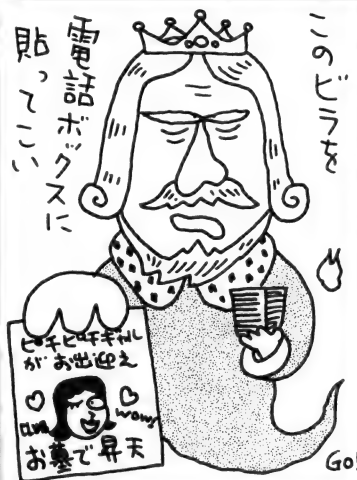 このビラを
電話ボックスに
貼ってこい
ピチピチギャル
がお出迎え
wow!
お墓で昇天
GO!